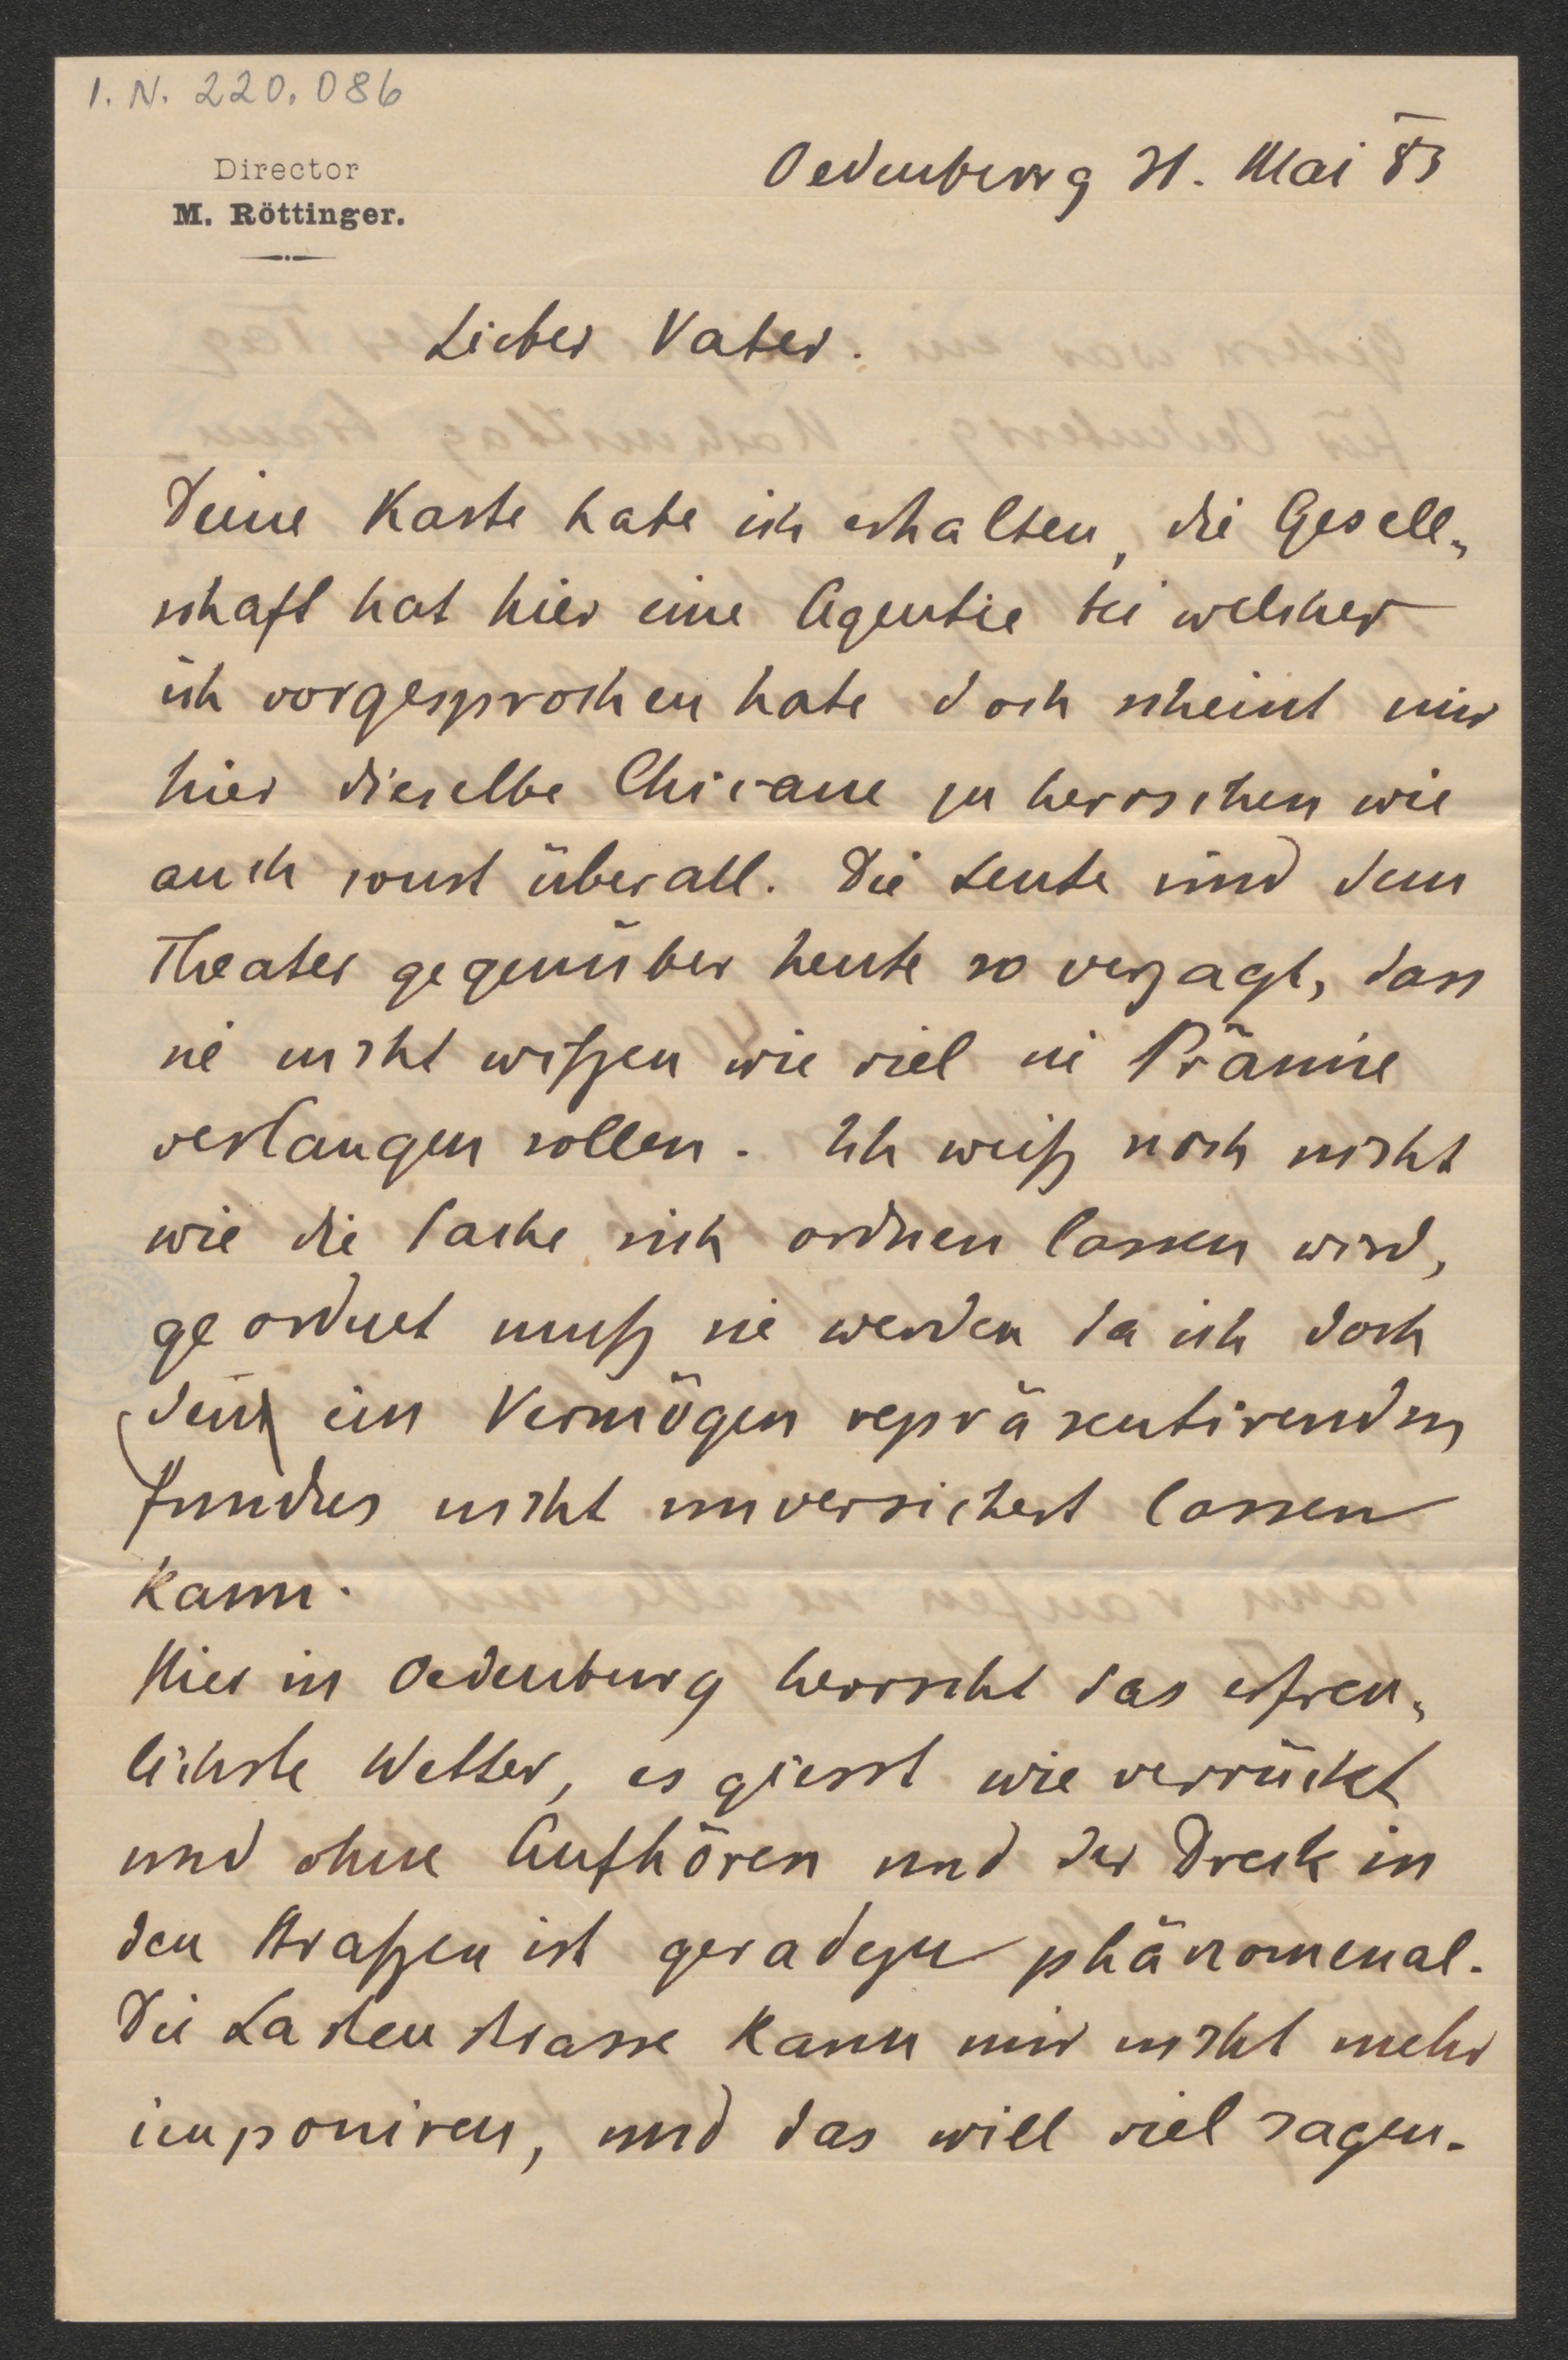 I. N. 220.086
Director
M. Röttinger.
Oedenburg 31. Mai 83
Lieber Vater.
Deine Karte habe ich erhalten, die Gesell„
schaft hat hier eine Agentie bei welcher
ich vorgesprochen habe doch scheint mir
hier dieselbe Chicane zu herrschen wie
auch sonst überall. Die Leute sind dem
Theater gegenüber heute so verzagt, dass
sie nicht wißen wie viel sie Prämie
verlangen sollen. Ich weiß noch nicht
wie die Sache sich ordnen lassen wird,
geordnet muß sie werden da ich doch
den ein Vermögen repräsentirenden
fundus nicht unversichert lassen
kann.
Hier in Oedenburg herrscht das erfreu„
lichste Wetter, es giesst wie verrückt
und ohne Aufhören und der Dreck in
den Straßen ist geradezu phänomenal.
Die Lastenstrasse kann mir nicht mehr
imponiren, und das will viel sagen.